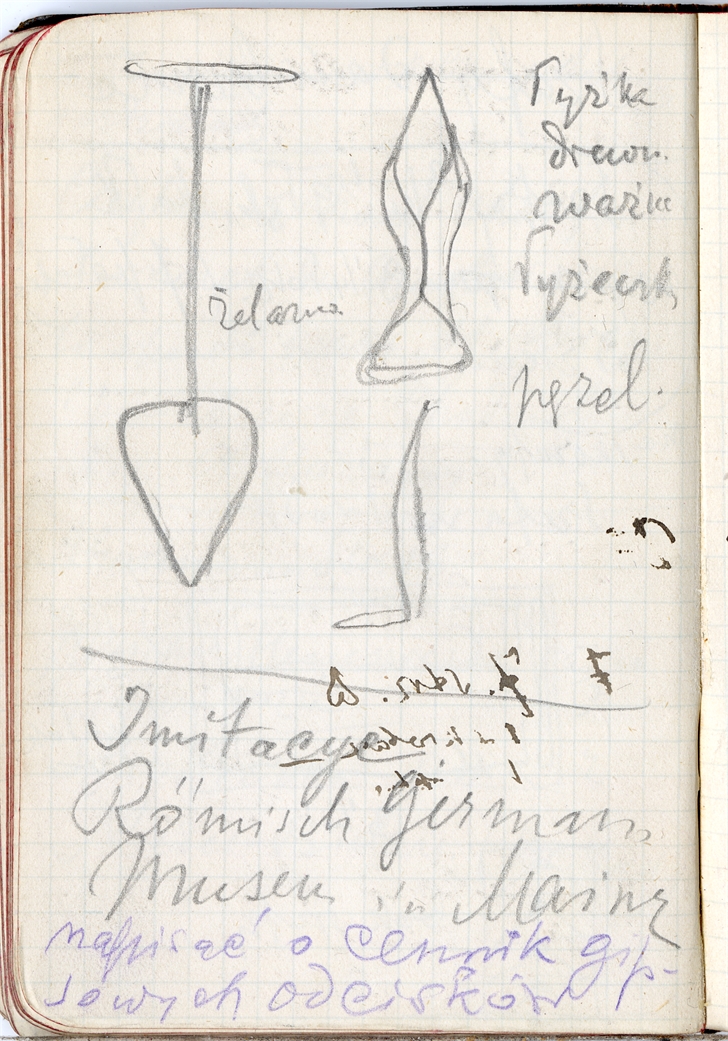 Łyżka
drewn.
ważka
Łyżeczk
żelazna
pęzel.
Imitacye
Römisch German.
Museum in Mainz
napisać o cennik gip-
sowych odcisków